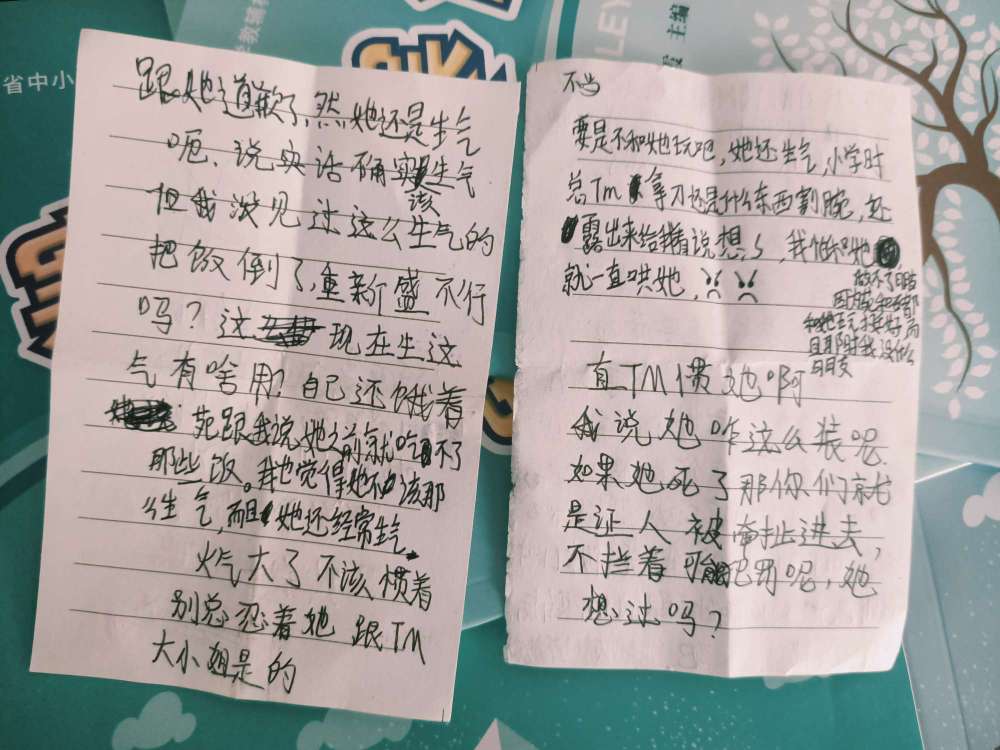 省中小
主编
LEY
跟她道歉了,然她还是生气
呃、说实话确实该生气
但我没见过这么生气的
把饭倒了,重新盛不行
吗?这现在生这
气有啥用?自己还饿着
苑跟我说她之前就吃不了
那些饭。我也觉得她不该那
么生气,而且她还经常生气。
火气大了不该惯着
别总忍着她 跟TM
大小姐是的
不当
要是不和她玩吧,她还生气,小学时
总TM拿刀还是什么东西割腕,还
露出来给我看说想si,我怕呀她
就一直哄她,
和她玩才挺好 而
且那时我没什么
朋友
真TM惯她啊
我说她咋这么装呢.
如果她死了那你们就
是证人 被牵扯进去,
不拦着可能犯罪呢,她
想过吗?